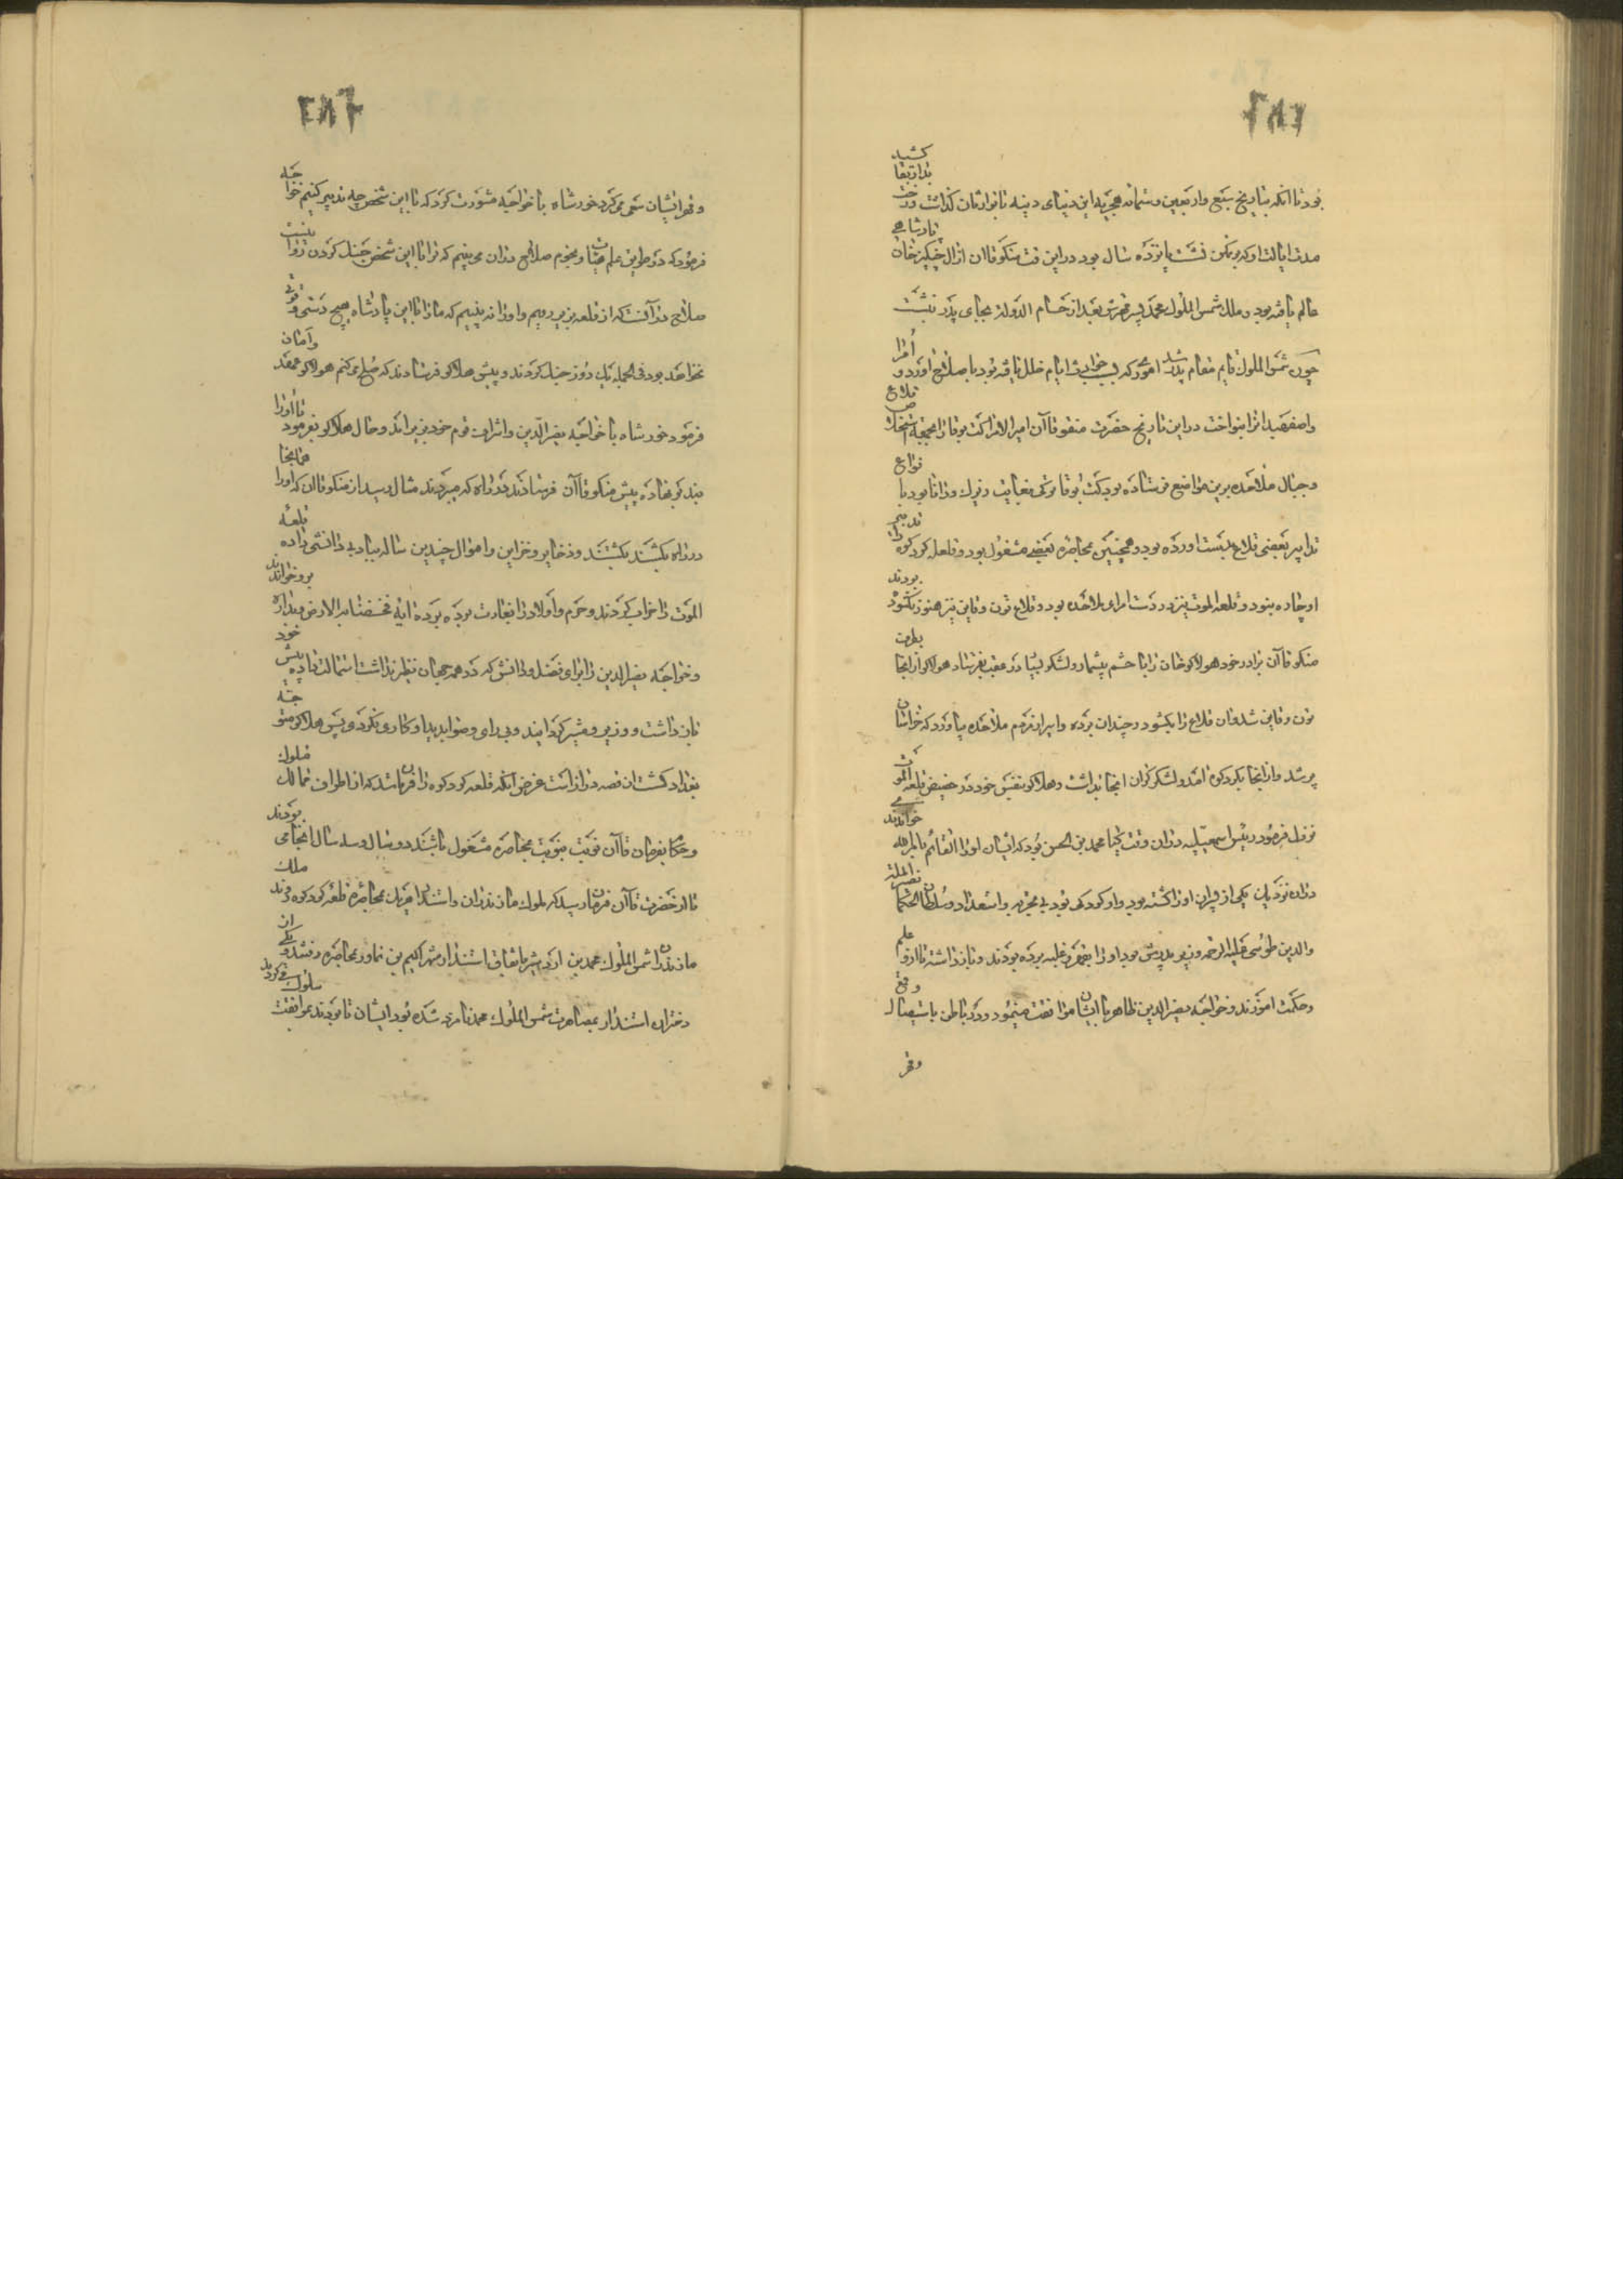 بود تا انکه بتاریخ سبع واربعین وستمائه هجریه این دنیای دنیه با نوادمان کذاشت ورخت بدار بقا کشید
مدت ایالت او که بر نشست پانزده سال بود در این وقت منکوقاان از ال چنکیز خان پادشاهی
عالم یافته بود و ملک شمس الملوک محمد پسر مهترش بعد از حسام الدوله بجای پدر نشست
چون شمس الملوک قایم مقام پدر شد اموری که بسبب خرابی ایام خلل یافته بود با صلاح اورد و امرا
واصفهبدانرا بنواخت در این تاریخ حضرت منقوقاآن امیر الامرا کت بوقا را بجمیع استخلاص قلاع
وجبال ملاحده برین مواضع فرستاده بود کت بوقا ترکی بغایت زیرک ودانا بود با نواع
تدابیر بعضی قلاع بدست اورده بود وهمچنین بمحاصره بعضی مشغول بود وقلعه کردکوه را تدبیر
او چاره نبود وقلعه الموت نیز در دست امرای ملاحده بود وقلاع تون وقاین نیز هنوز نکشوده بودند
منکوقاآن برادر خود هولاکوخان را با حشم بیشمار ولشکر بسیار در عقب بفرستاد هولاکو از انجا بطرف
تون وقاین شد وان قلاع را بکشود و چندان برده واسیر از مردم ملاحده بیاورد که خراسان
پر شد واز انجا بکردکوه امد ولشکر کران انجا بداشت وهلاکو بنفس خود در حضیض قلعه الموت
نزول فرمود رییس اسمعیلیه دران وقت کیا محمد بن الحسن بود که ایشان او را القائم بامر الله می خواندند
دران نزدیک یکی از پسران او را کشته بود واو کودکی بود بی تجربه واستعداد وسلطان الحکما نصیر الملة
والدین طوسی علیه الرحمه وزیر پدرش بود او را بقهر وغلبه برده بودند وباز داشته تا از او علم
وحکمت اموزند وخواجه نصیر الدین ظاهر با ایشان موافقت مینمود ودر باطن باستیصال وقمع
وقهر
وقهر ایشان سعی می کرد خورشاه با خواجه مشورت کرد که با این شخص چه تدبیر کنیم خواجه
فرمود که در طریق علم حساب ونجوم صلاح دران می بینم که ترا با این شخص جنک کردن روا نیست
صلاح در آنست که از قلعه بزیر رویم واو را ببینیم که ما را با این پادشاه هیچ دستی وقوتی
نخواهد بود فی الجمله یک دو روز جنک کردند وپیش هلاکو فرستادند که صلح می کنم هولاکو عهد وامان
فرمود خورشاه با خواجه نصیر الدین واشراف قوم خود بزیر امد ودر حال هلاکو بفرمود تا او را
بند بر نهاده پیش منکوقاآن فرستادند در راه که میبردند مثال رسید از منکوقاان که او را هم انجا
در راه بکشند بکشتند وذخایر وخزاین واموال چندین ساله بباد بی دانشی داده قلعه
الموت را خراب کردند وحرم واولاد را بغارت برده برده ایه فخسفنا به الارض وبداره برو خواندند
وخواجه نصیر الدین را برای فضل ودانش که در همه جهان نظیر نداشت استمالت داده پیش خود
باز داشت ووزیر ومشیر کردانید وبی رای وصوابدید او کاری نکردی پس هلاکو متوجه
بغداد کشت ان قصه دراز است غرض انکه قلعه کردکوه را فرمان شد که از اطراف ممالک ملوک
وحکام بفرمان قاآن نوبت بنوبت بمحاصره مشغول باشند دو سال وسه سال انجا می بودند
تا از حضرت قاآن فرمان رسید که ملوک مازندران واستندار هریک بمحاصره قلعه کردکوه روند ملک
مازندران شمس الملوک محمد بن اردشیر باتفاق استندار شهراکیم بن نماور بمحاصره رفتند ویکی از
دختران استندار بمصاهرت شمس الملوک محمد نامزد شده بود ایشان تا بودند بموافقت سلوک می کردند